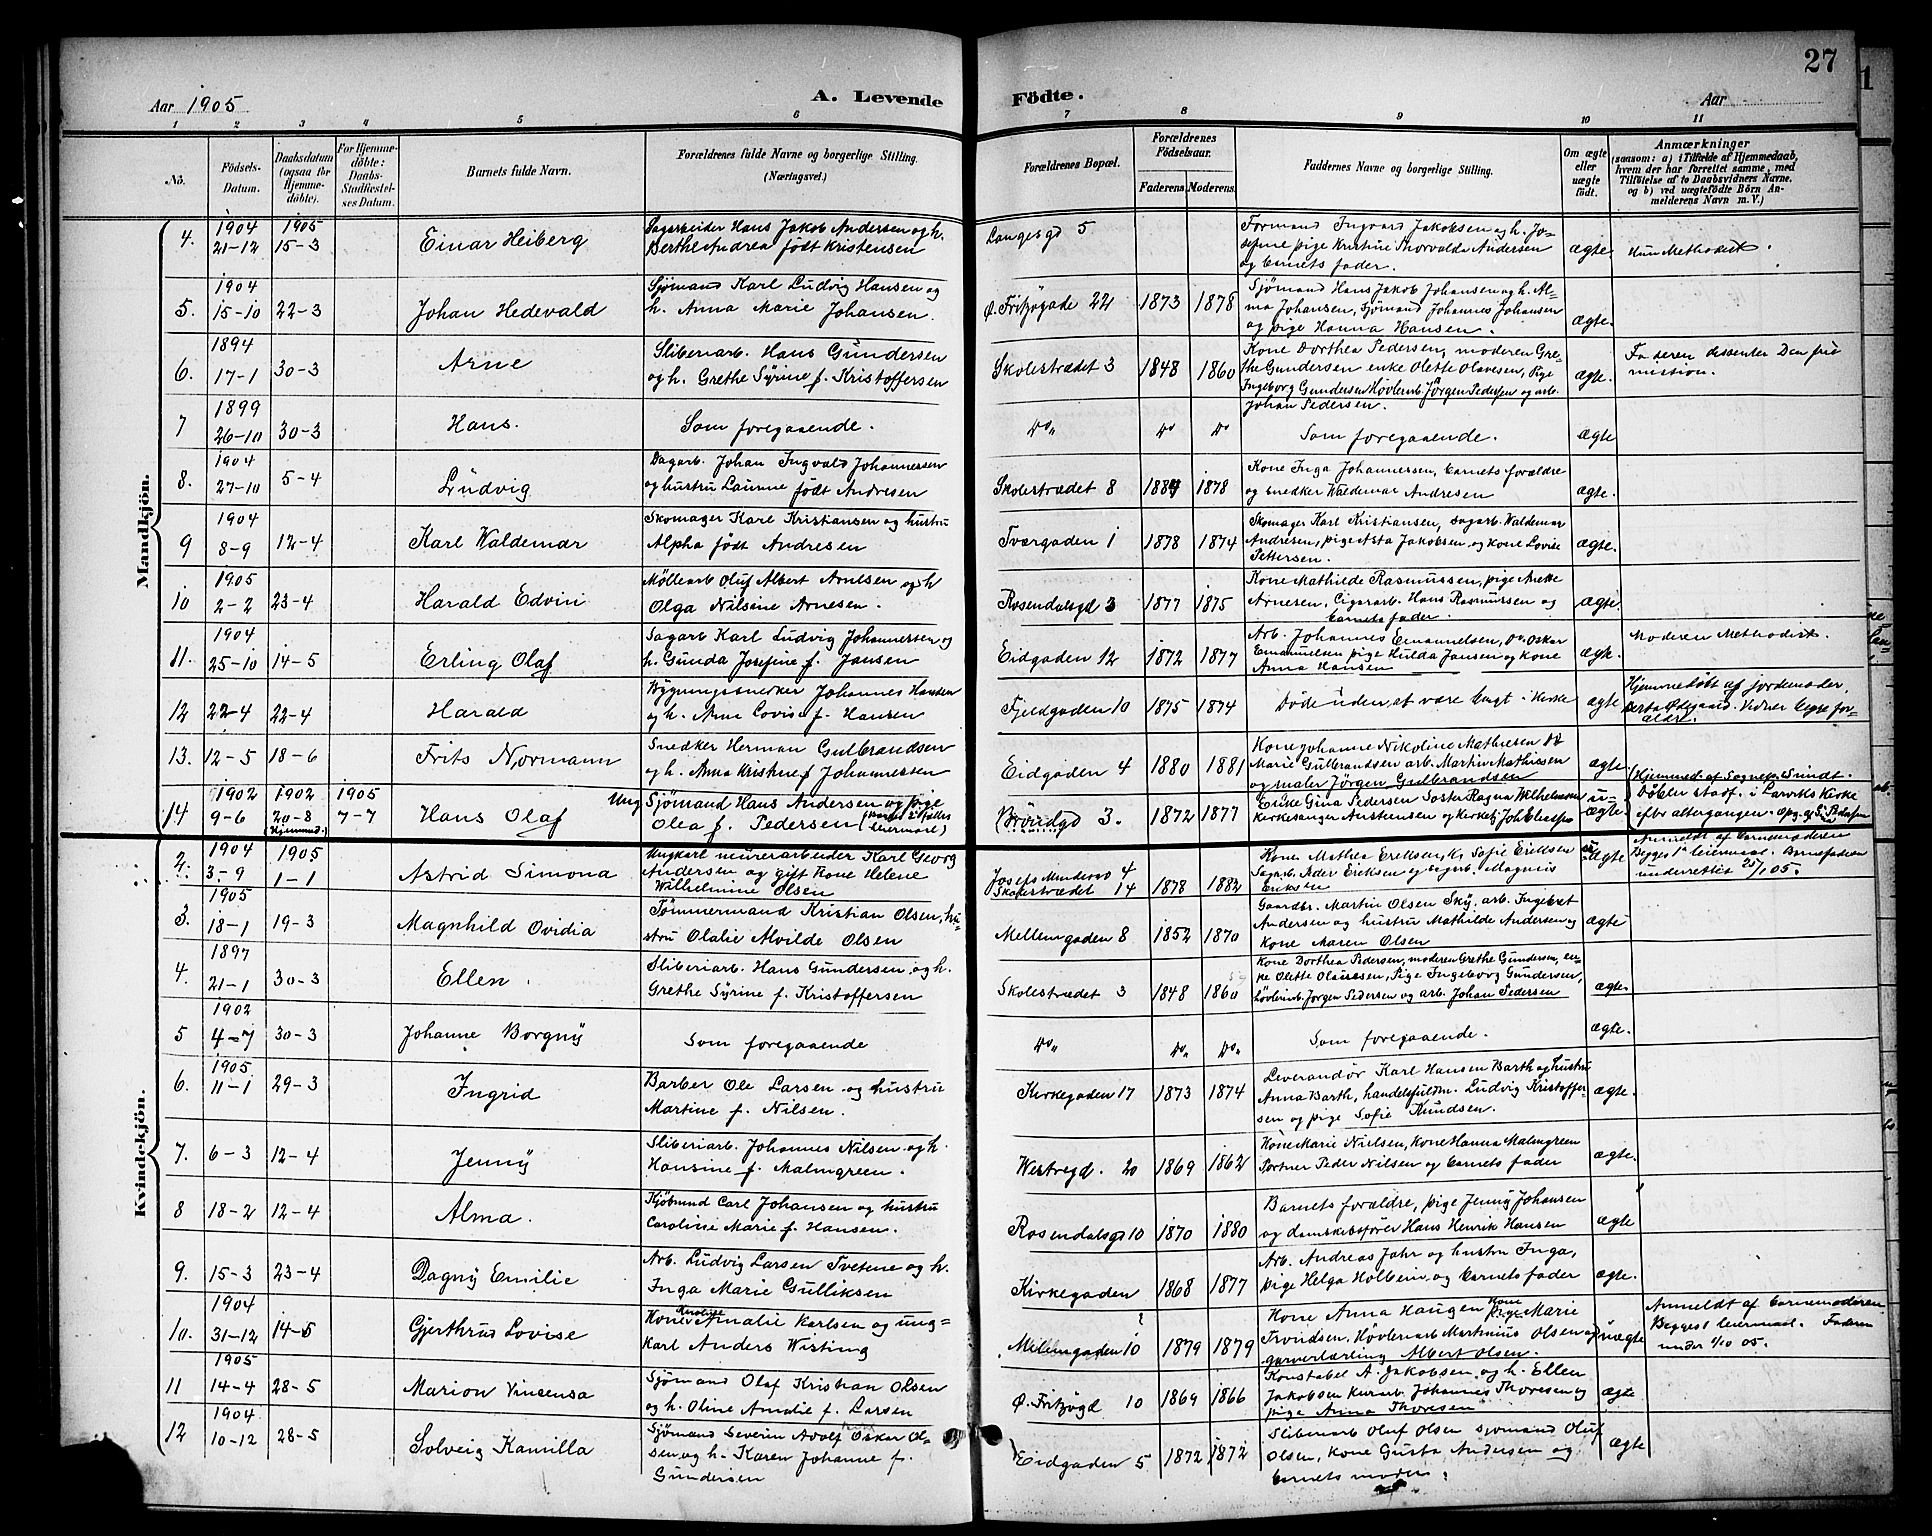 27
Aar 1905
A. Levende
Födte.
Aar
1 2 3 4 5 6 7 8 9 10 11
No.
Födsels-Datum.
Daabsdatum (ogsaa for Hjemmedöbte).
For Hjemmedöbte: Daabs-Stadfæstelses Datum.
Barnets fulde Navn.
Forældrenes fulde Navne og borgerlige Stilling.
(Næringsvei.)
Forældrenes Bopæl.
Forældrenes Födselsaar.
Faderens Moderens.
Faddernes Navne og borgerlige Stilling.
Om ægte eller uægte födt.
Anmærkninger
(saasom: a) i Tilfælde af Hjemmedaab, hvem der har forrettet samme, med Tilföielse af to Daabsvidners Navne, og b) ved uægtefödte Börn Anmelderens Navn m. V.)
Mandkjön.
4. 1904 21-12 1905 15-3 Einar Heiberg
Sagarbeider Hans Jakob Andersen og h.
Berthe Andrea födt Kristensen
Langesgd 5
Formand Ingvard Jakobsen og h. Jo-
sefine pige Kristine Thorvalda Andersen
og barnets fader.
ægte. Hun Methodist.
5. 1904 15-10 22-3 Johan Hedevald
Sjömand Karl Ludvig Hansen og
h. Anna Marie Johansen.
Ø. Fritzögade 22 1873 1878
Sjömand Hans Jakob Johansen og h. Al-
ma Johansen, Sjömand Johannes Johansen
og pige Hanna Hansen.
ægte.
6. 1894 17-1 30-3 Arne
Sliberiarb. Hans Gundersen
og h. Grethe Syrine f. Kristoffersen
Skolestrædet 3 1848 1860
Kone Dorthea Pedersen, moderen Gre-
the Gundersen enke Olette Olavesen, Pige
Ingeborg Gundersen Høvlerarb. Jörgen Pedersen og arb.
Johan Pedersen.
ægte.
Faderen dissenter Den fri
mission.
7 1899 26-10 30-3 Hans.
Som foregaaende.
Do. Do Do
Som foregaaende.
ægte
8. 1904 27-10 5-4 Ludvig
Dagarb. Johan Ingvald Johannersen
og hustru Laurine födt Andresen
Skolestrædet 8 1884 1878
Kone Inga Johannersen, barnets forældre
og snedker Waldemar Andresen
ægte.
9 1904 8-9 12-4 Karl Waldemar
Skomager Karl Kristiansen og hustru
Alpha födt Andresen
Tværgaden 1 1878 1874
Skomager Karl Kristiansen, sagarb. Waldemar
Andresen, pige Asta Jakobsen og Kone Lovise
Pettersen.
ægte.
10 1905 2-2 23-4 Harald Edvin
Møllearb Oluf Albert Arnesen og h
Olga Nilsine Arnesen.
Rosendalsgd 3 1877 1875
Kone Mathilde Rasmussen, pige Anette
Arnesen, Cigararb. Hans Rasmussen og
barnets fader.
ægte.
11. 1904 25-10 14-5 Erling Olaf
Sagarb Karl Ludvig Johannersen og
h. Gunda Josefine f. Jansen
Eidgaden 12 1872 1877
Arb. Johannes Emanuelsen, Do. Oskar
Emanuelsen pige Hulda Jansen og Kone
Anna Hansen
ægte.
Moderen Methodist.
12 22-4 22-4 Harald
Bygningssnedker Johannes Hansen
og h. Anne Lovise f. Hansen
Fjeldgaden 10 1875 1874
Döde uden at være bragt i Kirke
ægte
Hjemmedöbt af jordemoder
Berta Ødegaard. Vidner begge for-
ældre.
13. 12-5 18-6 Frits Normann
Snedker Herman Gulbrandsen
og h. Anna Kristine f Johannersen
Eidgaden 4 1880 1881
Kone Johanne Nikoline Mathiesen Do
Marie Gulbrandsen arb. Martin Mathiesen
og maler Jörgen Gulbrandsen
ægte
14 1902 9-6 1902 20-8 (Hjemmed.) 1905 7-7 Hans Olaf
Ung Sjömand Hans Andersen og pige
Olea f. Pedersen
3. 1872 1877
Enke Gina Pedersen Søster Ragna Wilhelmsen
u-ægte
(Hjemmed. af Sognepr. Sundt.
Dåben stadf. i Larviks Kirke
Kvindekjön.
2. 1904 3-9 1905 1-1 Astrid Simona
Ungkarl murerarbeider Karl Georg
Andersen og gift Kone Helene
Wilhelmine Olsen
4
Skolestrædet 14 1878 1882
Kone Mathea Eriksen, K. Sofie Eriksen
Sagarb. Peder Eriksen og sagarb. Magnus
Eriksen
uægte
Anmeldt af barnemoderen
Begges 1ste leiermaal. Barnefaderen
underrettet 25/1 05.
3. 1905 18-1 19-3 Magnhild Ovidia
Tömmermand Kristian Olsen, hu-
stru Olalie Alvilde Olsen
Mellemgaden 8 1852 1870
Gaardbr. Martin Olsen Sky, arb. Ingebret
Andersen og hustru Mathilde Andersen og
Kone Maren Olsen
ægte
4. 1897 21-1 30-3 Ellen.
Sliberiarb. Hans Gundersen og h.
Grethe Syrine f. Kristoffersen
Skolestrædet 3 1848 1860
Kone Dorthea Pedersen, moderen Grethe Gundersen, en-
ke Olette Olavesen, Pige Ingeborg Gundersen,
Høvlerarb. Jørgen Pedersen og arb. Johan Pedersen
ægte
5 1902 4-7 30-3 Johanne Borgny
Som foregaaende
Do. Do. Do.
Som foregaaende.
ægte.
6. 1905 11-1 29-3 Ingrid
Barber Ole Larsen og hustru
Martine f. Nilsen.
Kirkegaden 17 1873 1874
Leverandør Karl Hansen Barth og hustru
Anna Barth, handelsfuldm. Ludvig Kristoffer-
sen og pige Sofie Knudsen.
ægte.
7. 6-3 12-4 Jenny
Sliberiarb. Johannes Nilsen og h.
Hansine f. Malmgreen.
Westregd. 20 1869 1862
Kone Marie Nielsen, Kone Hanna Malmgreen
Portner Peder Nilsen og barnets fader
ægte.
8 18-2 12-4 Alma.
Kjöbmd Carl Johansen og hustru
Caroline Marie f. Hansen.
Rosendalsgd 10 1870 1880
Barnets forældre, pige Jenny Johansen
og damskibsfører Hans Henrik Hansen
ægte
9. 15-3 23-4 Dagny Emilie
Arb. Ludvig Larsen Tvetene og h.
Inga Marie Gulliksen
Kirkegaden 1868 1877
Arb. Andreas Jahr og hustru Inga,
pige Helga Holbein og barnets fader
ægte.
10. 1904 31-12 14-5 Gjerthrud Lovise
Kone Amalie Karlsen og ung-
karl Anders Wisting
Mellemgaden 10 1879 1879
Kone Anna Haugen Kone Pige Marie
Trondsen, Høvleriarb Martinius Olsen og
garverlærling Albert Olsen.
uægte
Anmeldt af barnemoderen
Begges 1 leiermaal. Faderen
under 1/10 05.
11 1905 14-4 28-5 Marion Vincensa
Sjömand Olaf Kristian Olsen
og h. Oline Amalie f. Larsen
Ø. Fritzøgd 10 1869 1866
Konstabel A. Jakobsen og h. Ellen
Jakobsen Kurvarb. Johannes Thoresen og
pige Anna Thoresen
ægte
12 1904 10-12 28-5 Solveig Kamilla
Sjömand Severin Adolf Oskar Ol-
sen og h. Karen Johanne f.
Gundersen
Eidgaden 5 1872 1872
Sliberiarb Oluf Olsen sjömand Oluf
Olsen, Kone Gusta Andersen og
barnets moder.
ægte